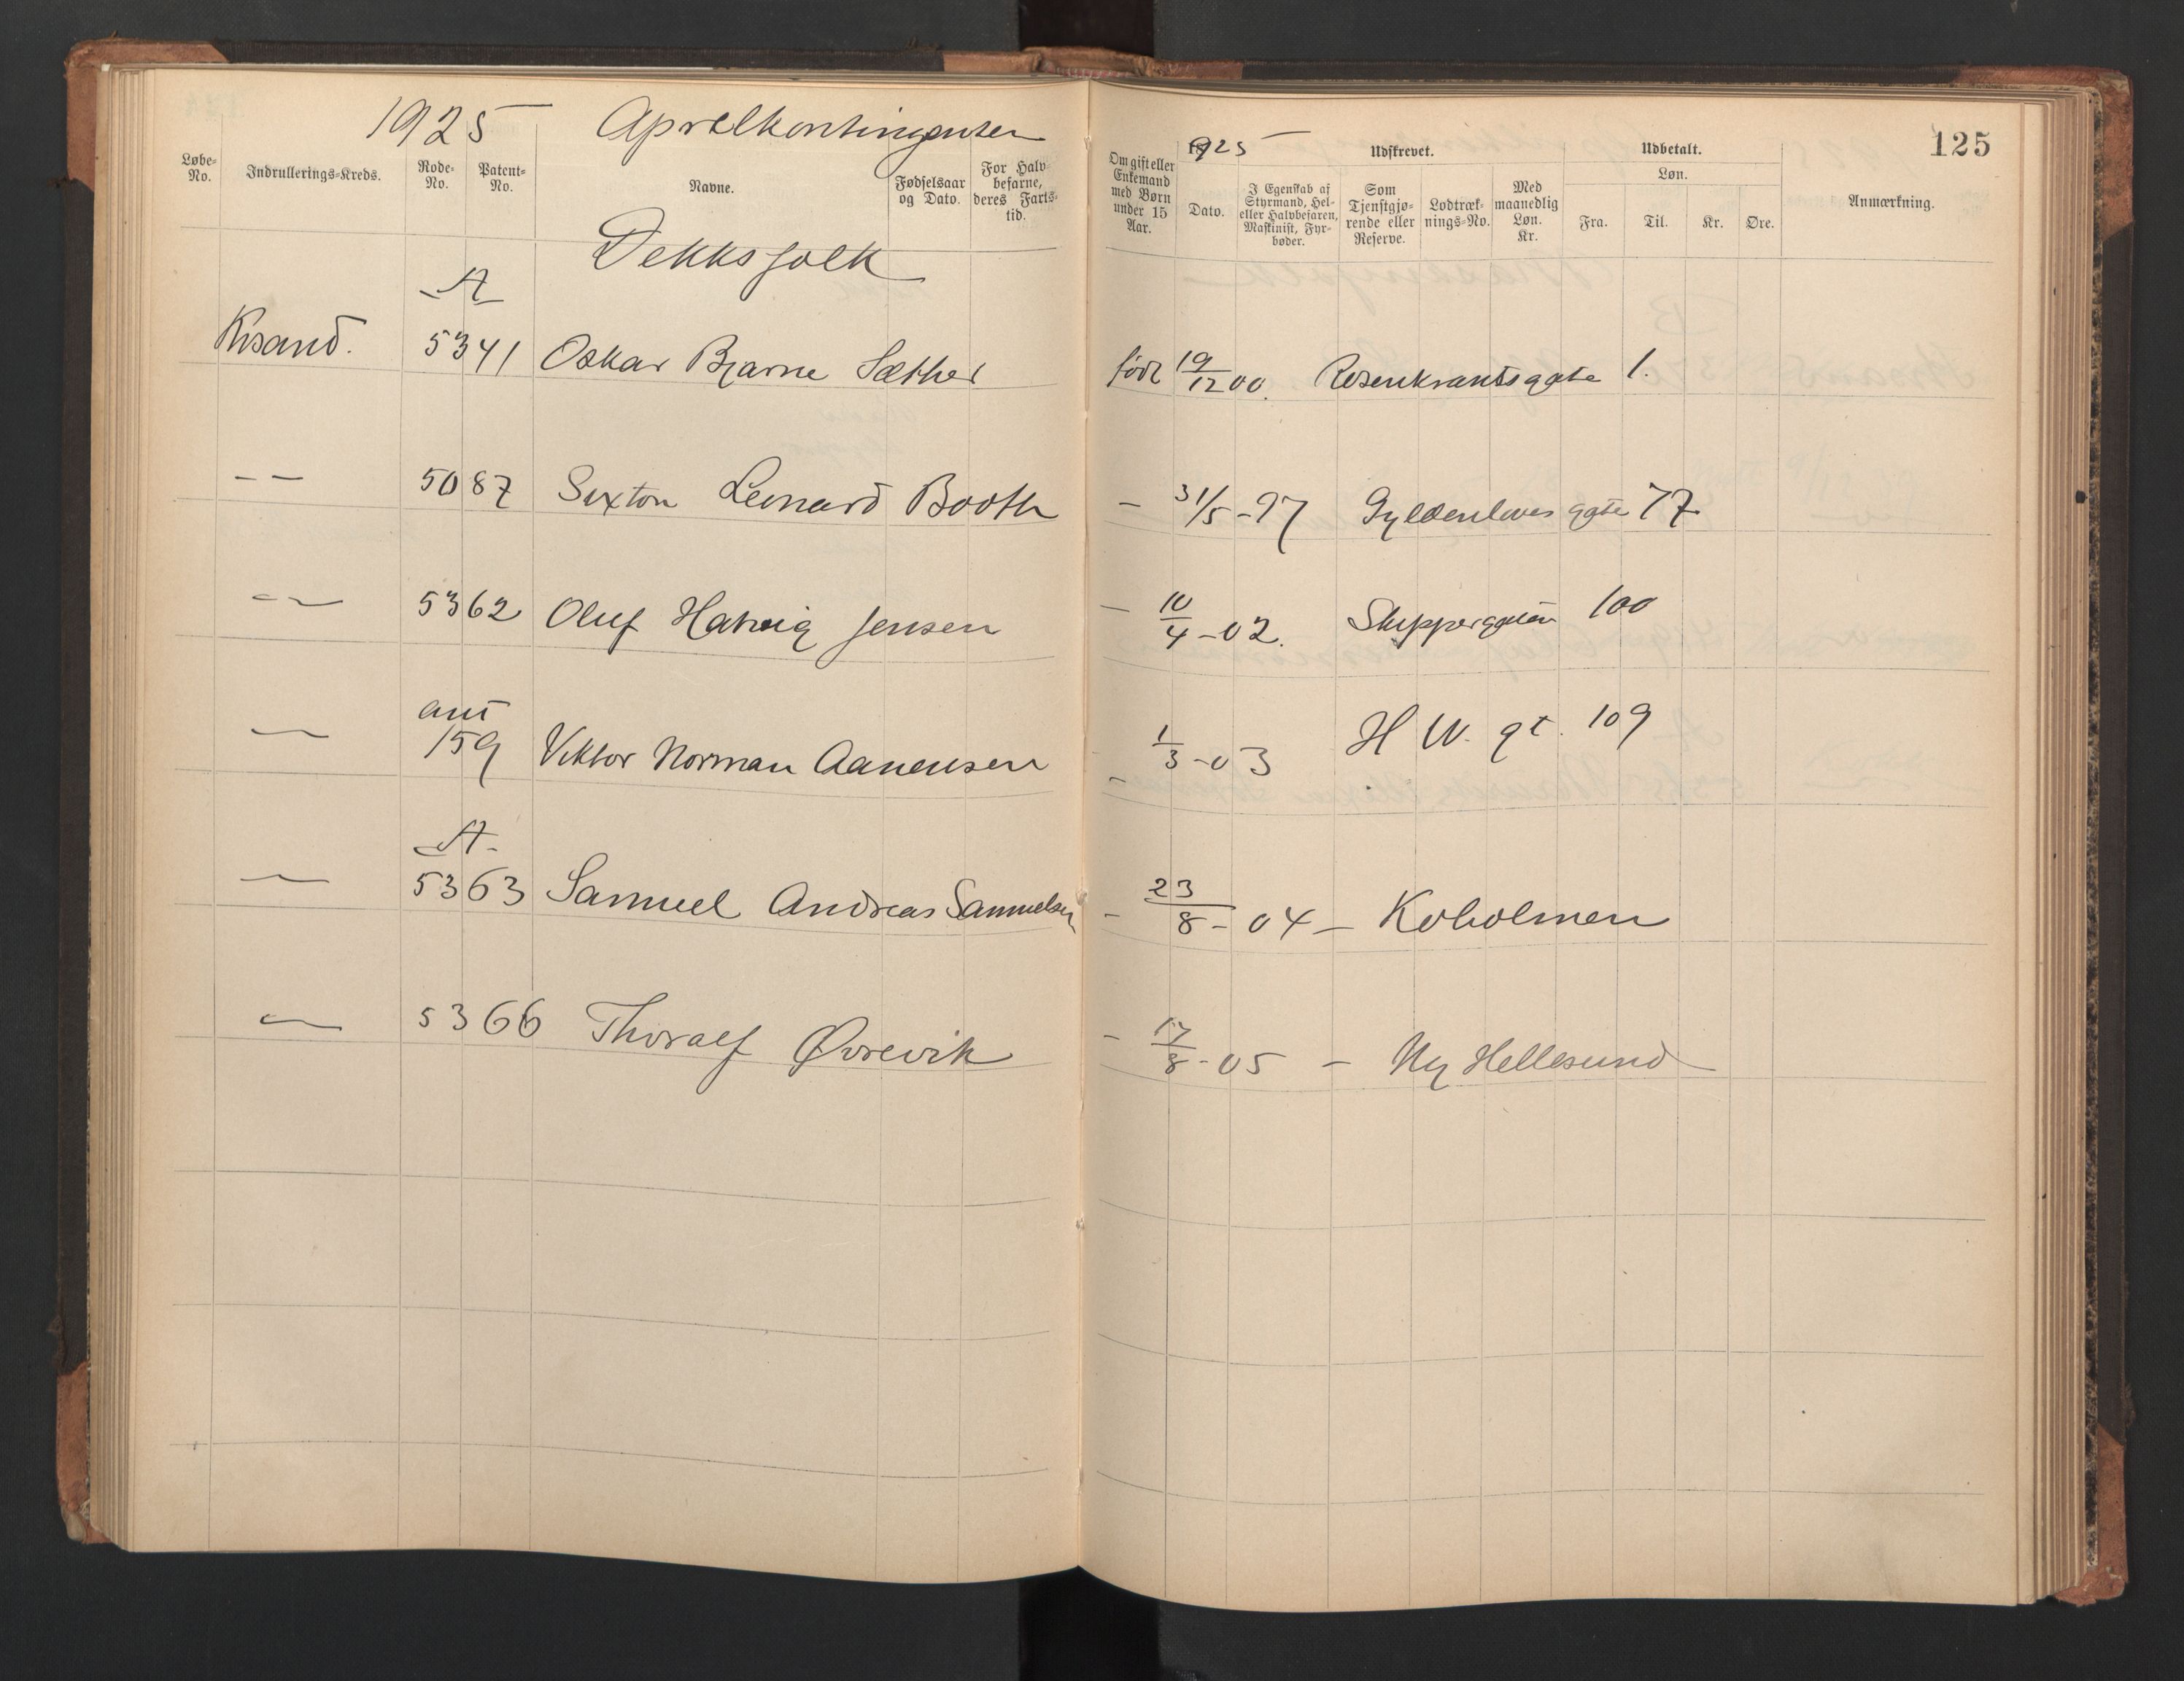 1925 Aprilkontingenten
125
Løbe-No.
Indrullerings-Kreds.
Rode-No.
Patent-No.
Navne.
Fødselsaar og Dato.
For Halvbefarne, deres Farts-tid.
Om gift eller Enkemand med Børn under 15 Aar.
1925
Dato.
Udskrevet.
I Egenskab af Styrmand, Hel- eller Halvbefaren, Maskinist, Fyrbøder.
Som Tjenstgjørende eller Reserve.
Lodtræknings-No.
Med maanedlig Løn. Kr.
Udbetalt.
Løn.
Fra.
Til.
Kr.
Øre.
Anmærkning.
Dekksfolk
A
Krsand. 5341 Oskar Bjarne Sæther født 19/12 00. Rosenkrantsgate 1.
— — 5087 Sixton Leonard Booth — 31/5 - 97 Gyldenløves gate 77
— — 5362 Oluf Hatvig Jensen — 10/4 - 02. Skippergaten 100
ant
— 159 Viktor Norman Aanensen - 1/3 - 03 H W. gt. 109
A
— 5363 Samuel Andreas Samuelsen - 23/8 - 04 — Koholmen
— 5366 Thoralf Øvrevik - 17/8 - 05 — Ny Hellesund